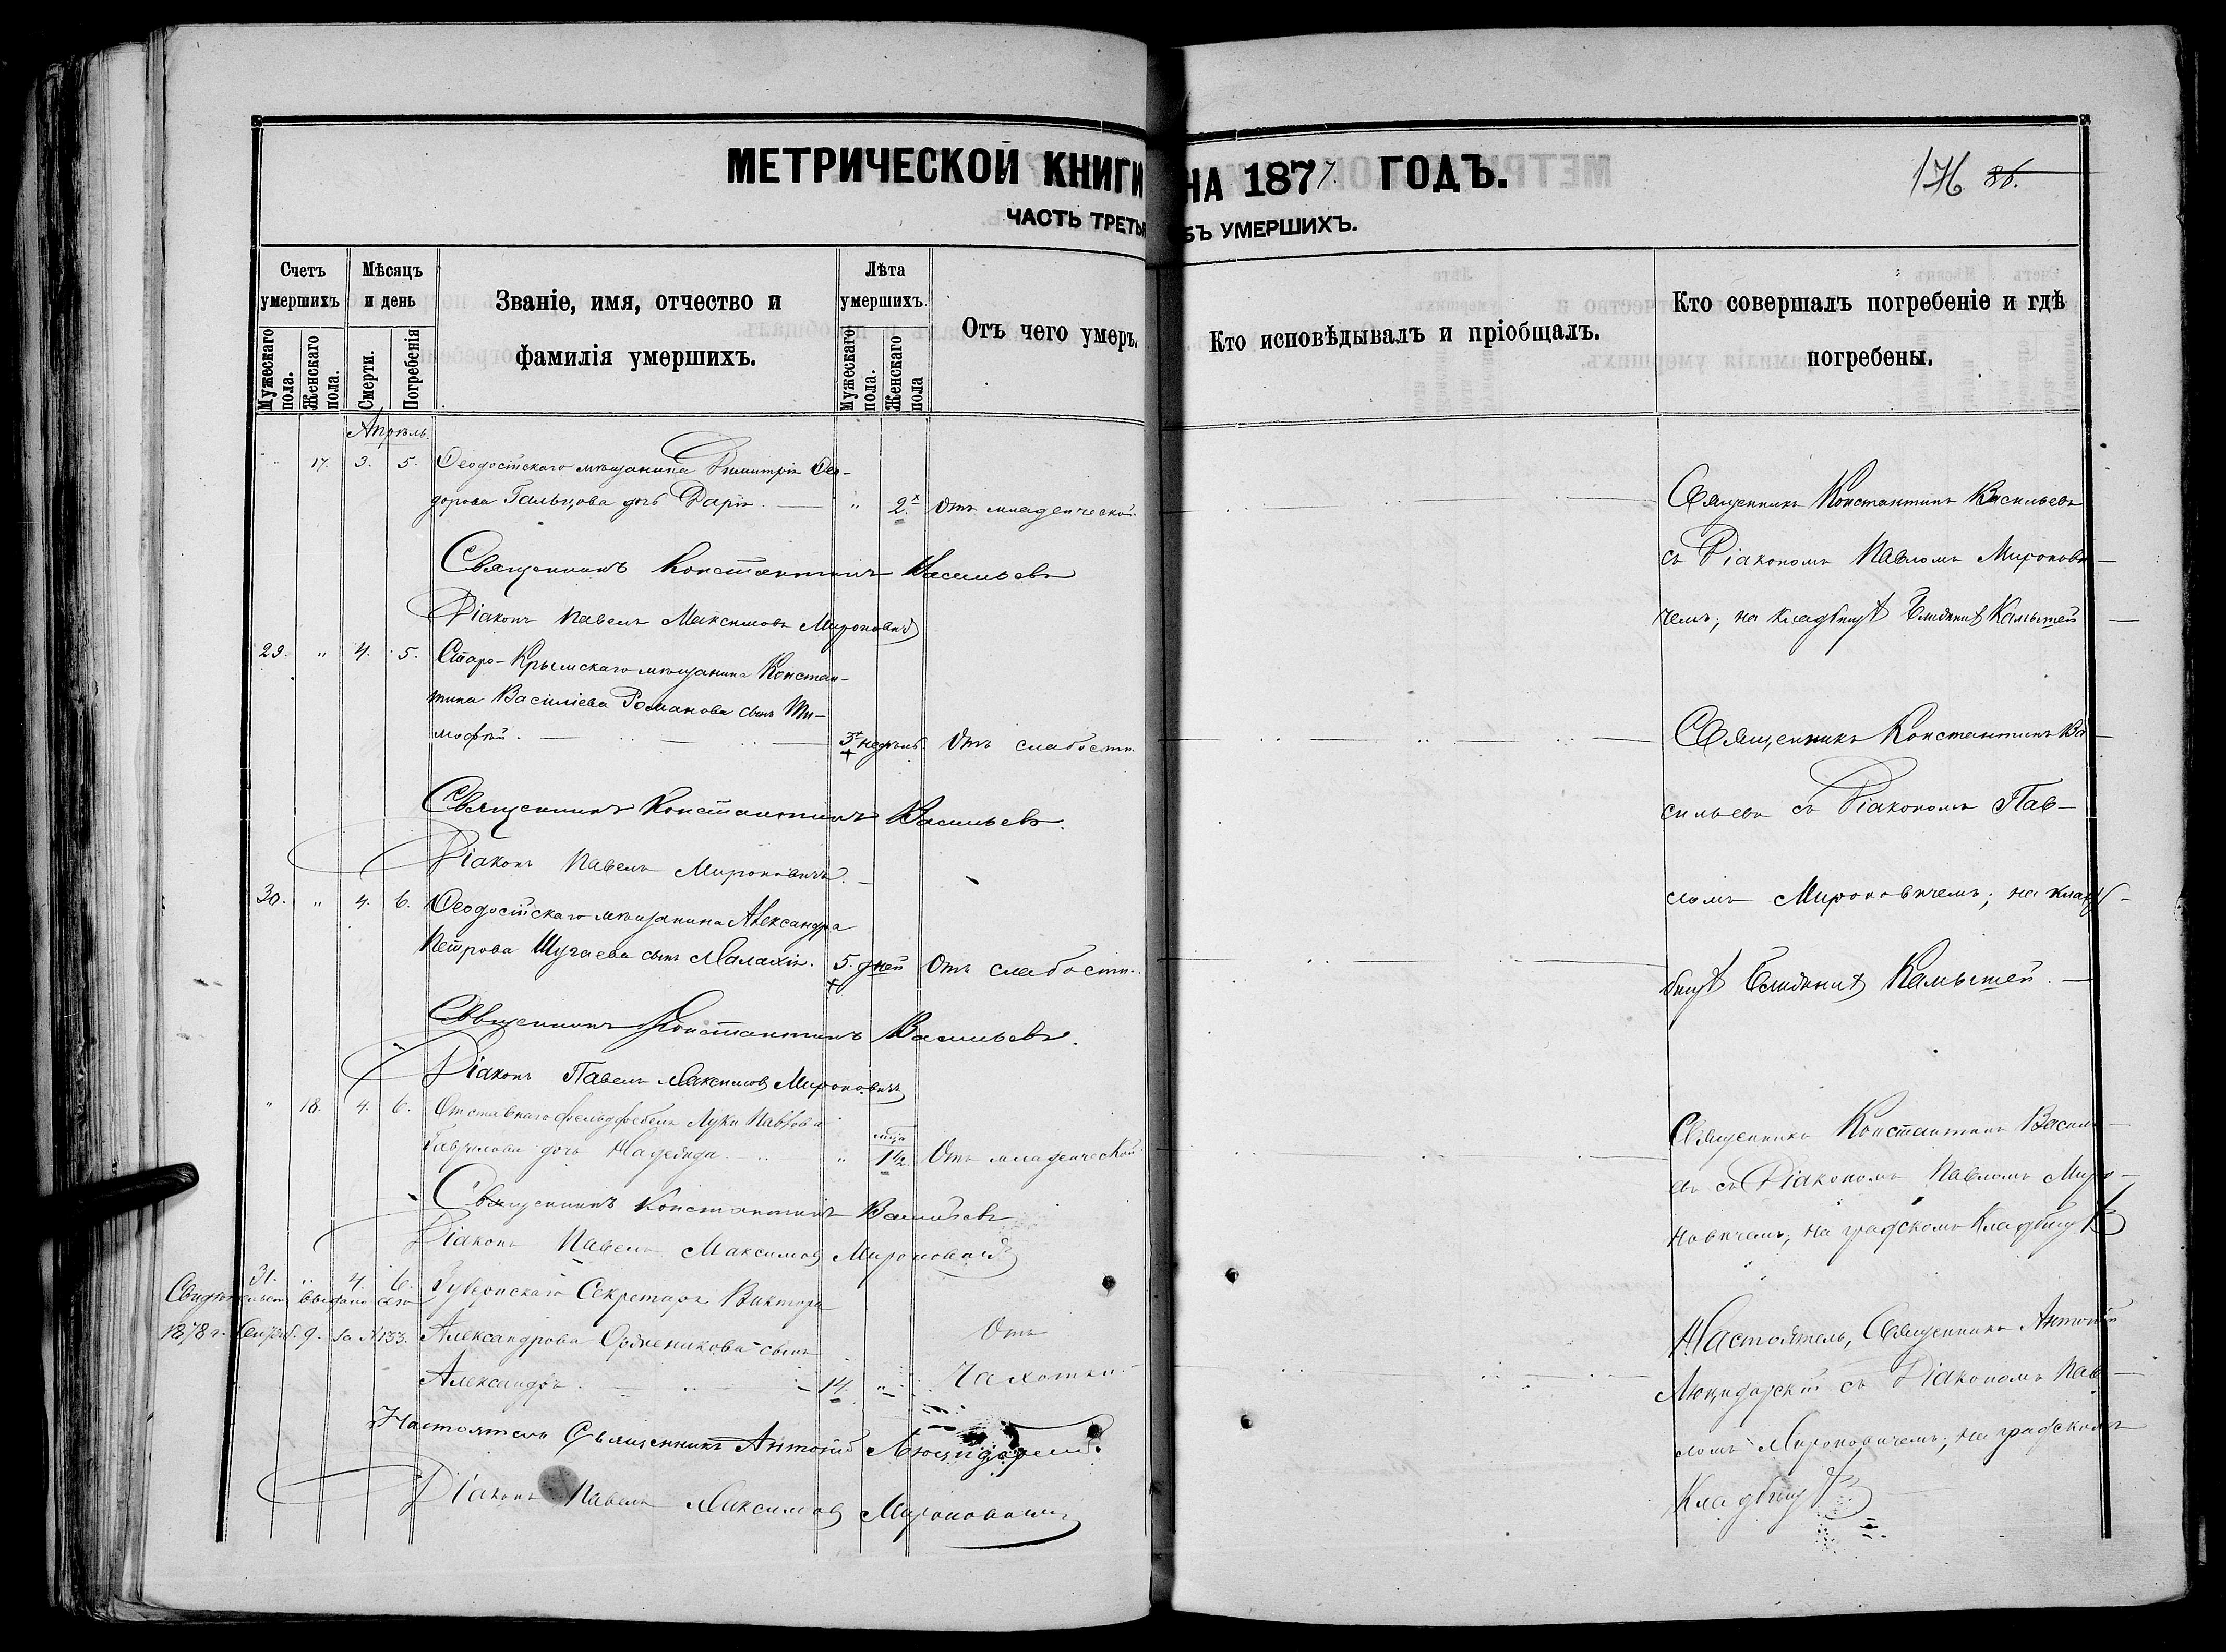 МЕТРИЧЕСКОЙ КНИГИ НА 1877. ГОДЪ.
176 86.
ЧАСТЬ ТРЕТЬЯ БЪ УМЕРШИХЪ.
Счетъ умершихъ
Мужескаго пола.
Женскаго пола.
Мѣсяцъ и день
Смерти.
Погребенія
Званіе, имя, отчество и
фамилія умершихъ.
Лѣта умершихъ.
Мужескаго пола.
Женскаго пола
Отъ чего умеръ.
Кто исповѣдывалъ и пріобщалъ.
Кто совершалъ погребеніе и гдѣ
погребены.
Апрѣль.
17. 3. 5. Ѳеодосійскаго мѣщанина Димитрія Ѳео-
дорова Гальцова дочь Дарія. — " 2. Отъ младенческой
Священникъ Константинъ Васильевъ
съ Діакономъ Павломъ Миронови-
чемъ; на кладбищѣ близкнит Камышей
Священникъ Константинъ Васильевъ
Діаконъ Павелъ Максимовъ Мироновичъ
29. " 4. 5. Старо-Крымскаго мѣщанина Констан-
тина Василіева Романова сынъ Ти-
мофей. — 3 недѣль Отъ слабости
Священникъ Константинъ Ва-
сильевъ съ Діакономъ Пав-
ломъ Мироновичемъ; на клад-
бищѣ Камышей. —
Священникъ Константинъ Васильевъ.
Діаконъ Павелъ Мироновичъ. —
30. " 4. 6. Ѳеодосійскаго мѣщанина Александра
Петрова Шугаева сынъ Малахія. 5. дней Отъ слабости.
Священникъ Константинъ Васильевъ.
Діаконъ Павелъ Максимовъ Мироновичъ
" 18. 4. 6. Отставнаго фельдфебеля Луки Павлова
Гаврилова дочь Надежда — " 1½ Отъ младенческой
Священникъ Константинъ Василь-
евъ съ Діакономъ Павломъ Миро-
новичемъ; на градскомъ кладбищѣ
Священникъ Константинъ Васильевъ
Діаконъ Павелъ Максимовъ Мироновичъ
31. " 4. 6. Губернскаго Секретаря Виктора
Александрова сынъ
Александръ. — 14. " Отъ
Чахотки
выдано
1878 г. Сентяб. 9. за № 133.
Настоятель, Священникъ Антоній
съ Діакономъ Пав-
ломъ Мироновичемъ; на градскомъ
Кладбищѣ
Настоятель Священникъ Антоній
Діаконъ Павелъ Максимовъ Мироновичъ